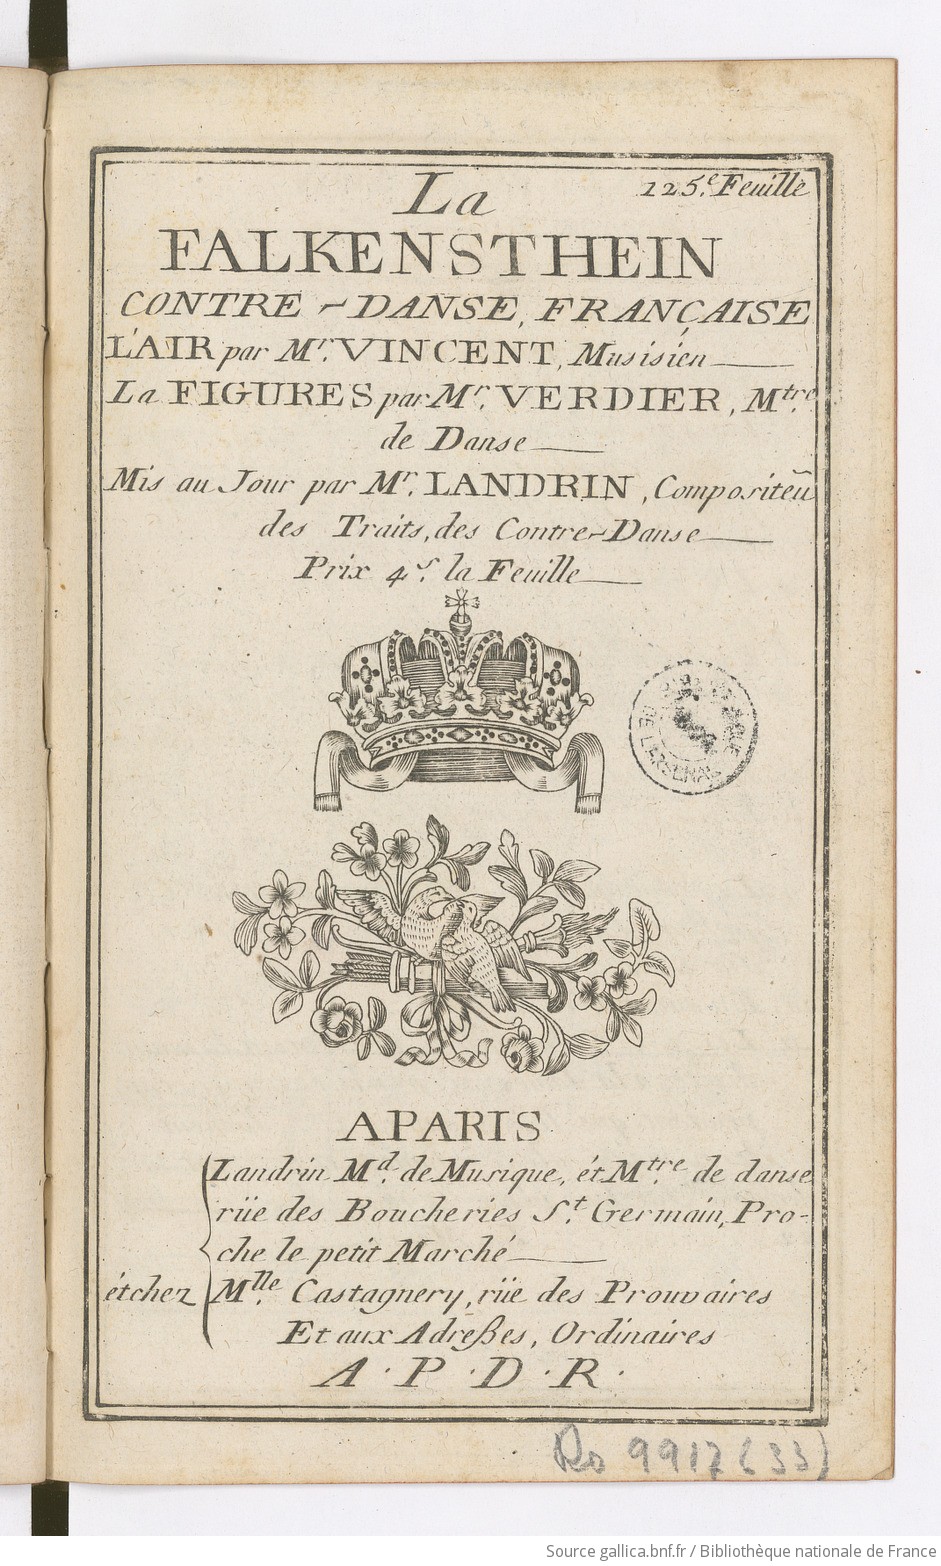 125.e Feuille
La
FALKENSTHEIN
CONTRE-DANSE, FRANÇAISE
L'AIR par Mr. VINCENT, Musisién
La FIGURES par Mr. VERDIER, Mtre.
de Danse
Mis au Jour par Mr. LANDRIN, Compositeū
des Traits, des Contre-Danse
Prix 4s. la Feuille
DE L'ARSENAL
APARIS
Landrin Md. de Musique, ét Mtre. de danse
rüe des Boucheries St. Germain, Pro-
che le petit Marché
étchez Mlle. Castagnery, rüe des Prouvaires
Et aux Adreßes, Ordinaires
A.P.D.R.
Ro 9917 (33)
Source gallica.bnf.fr / Bibliothèque nationale de France